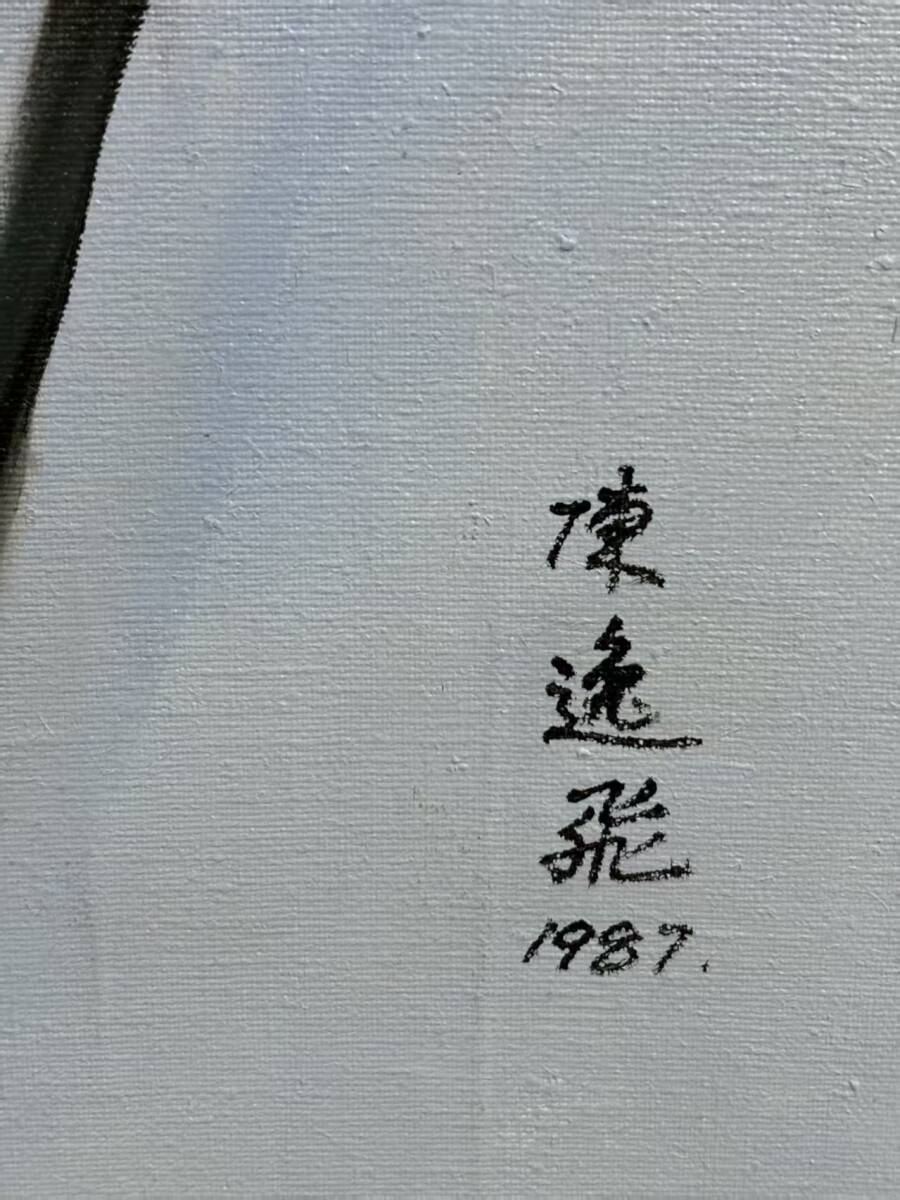 陳
逸
飛
1987.